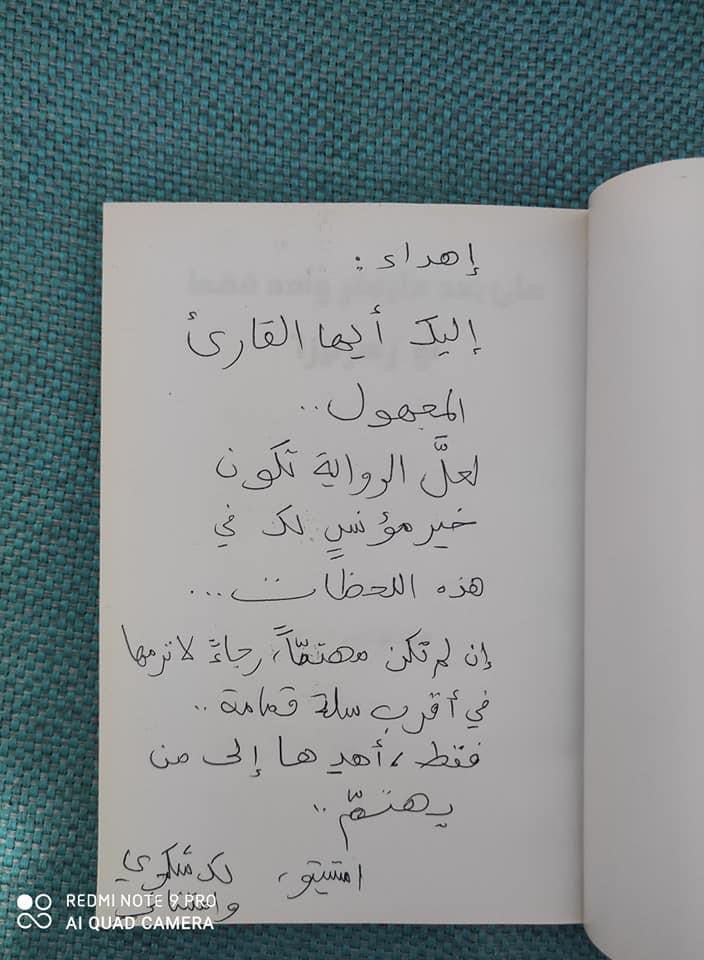 إهداء :
إليك أيها القارئ
المجهول ..
لعلَّ الرواية تكون
خير مؤنسٍ لك في
هذه اللحظات ...
إن لم تكن مهتمّاً، رجاءً لا ترمها
في أقرب سلة قمامة ..
فقط، أهدِها إلى من
يهتمّ ..
لك شكري
REDMI NOTE 9 PRO
AI QUAD CAMERA